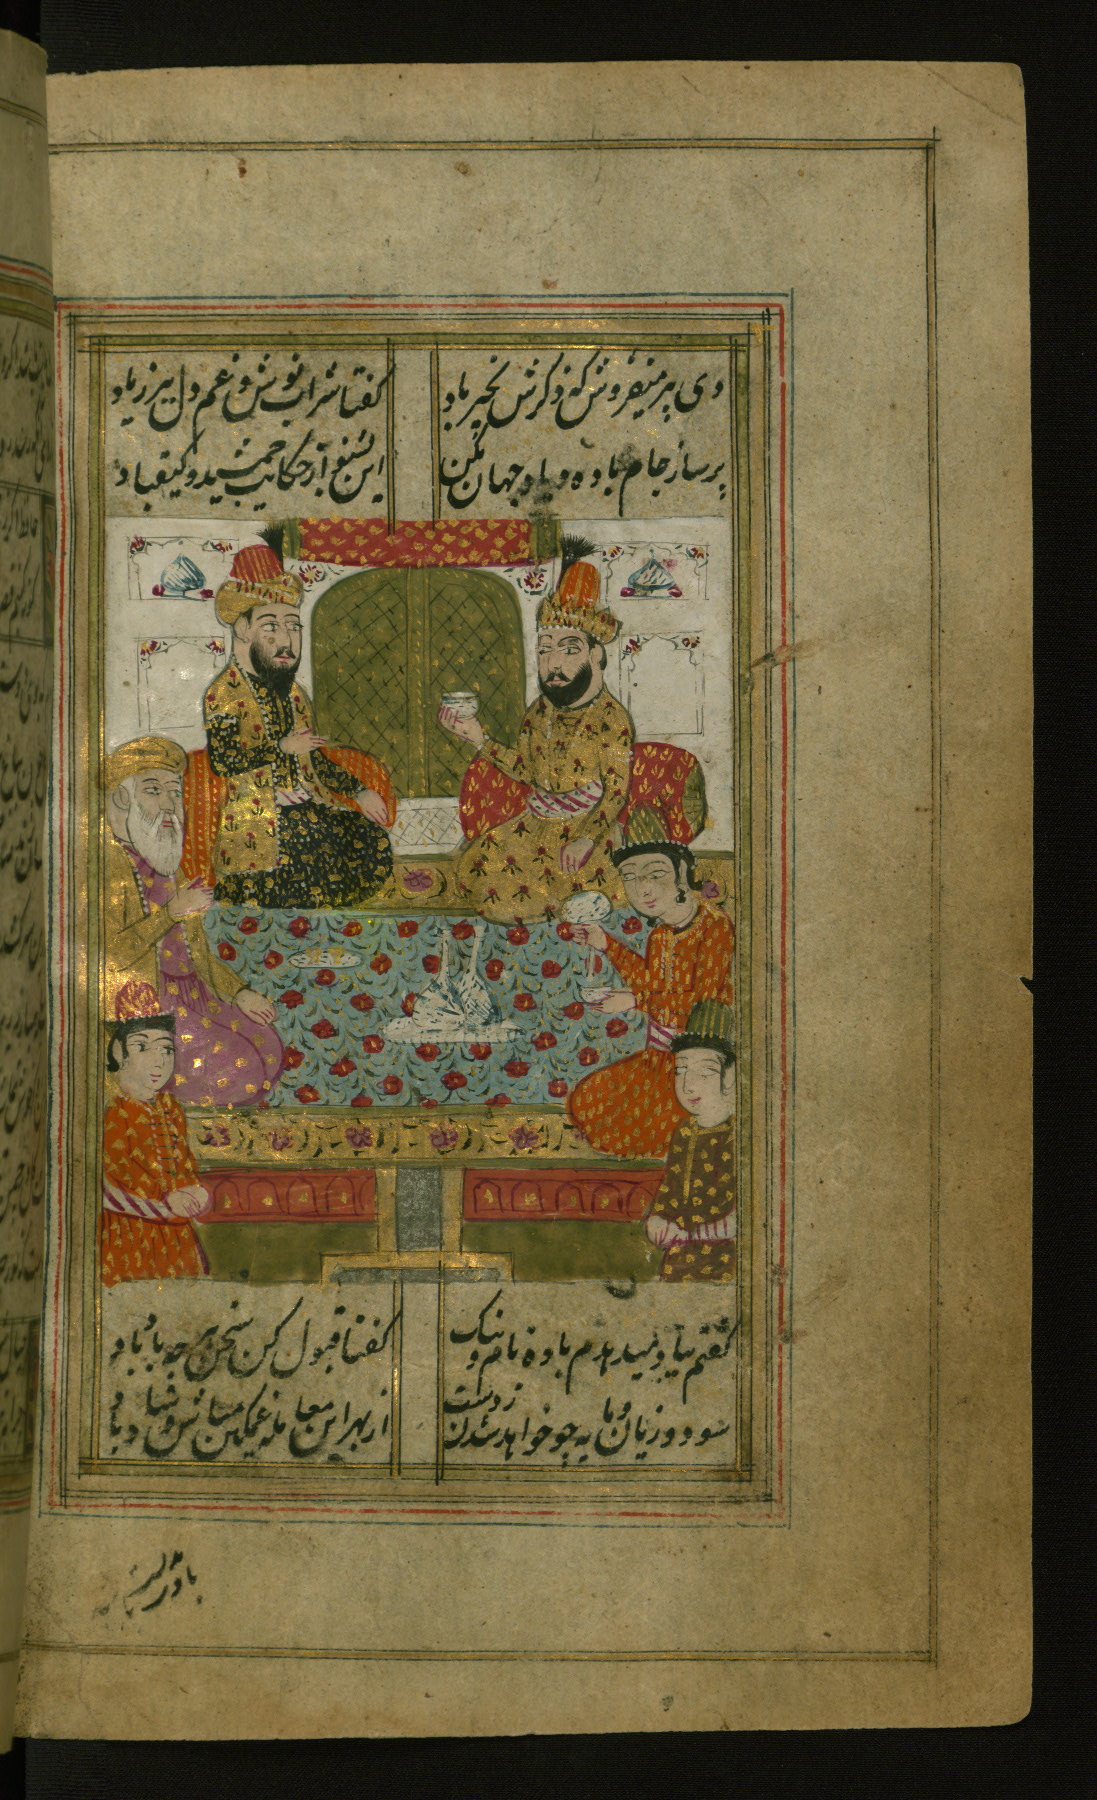 دی پیر میفروش که ذکرش بخیر باد گفتا شراب نوش و غم دل ببر ز یاد
پر ساز جام باده و یاد جهان مکن این بشنو از حکایت جمشید و کیقباد
گفتم بباد میدهدم باده نام و ننگ گفتا قبول کن سخن هر چه باد باد
سود و زیان و مایه چو خواهد شدن ز دست از بهر این معامله غمگین مباش و شاد
بادت